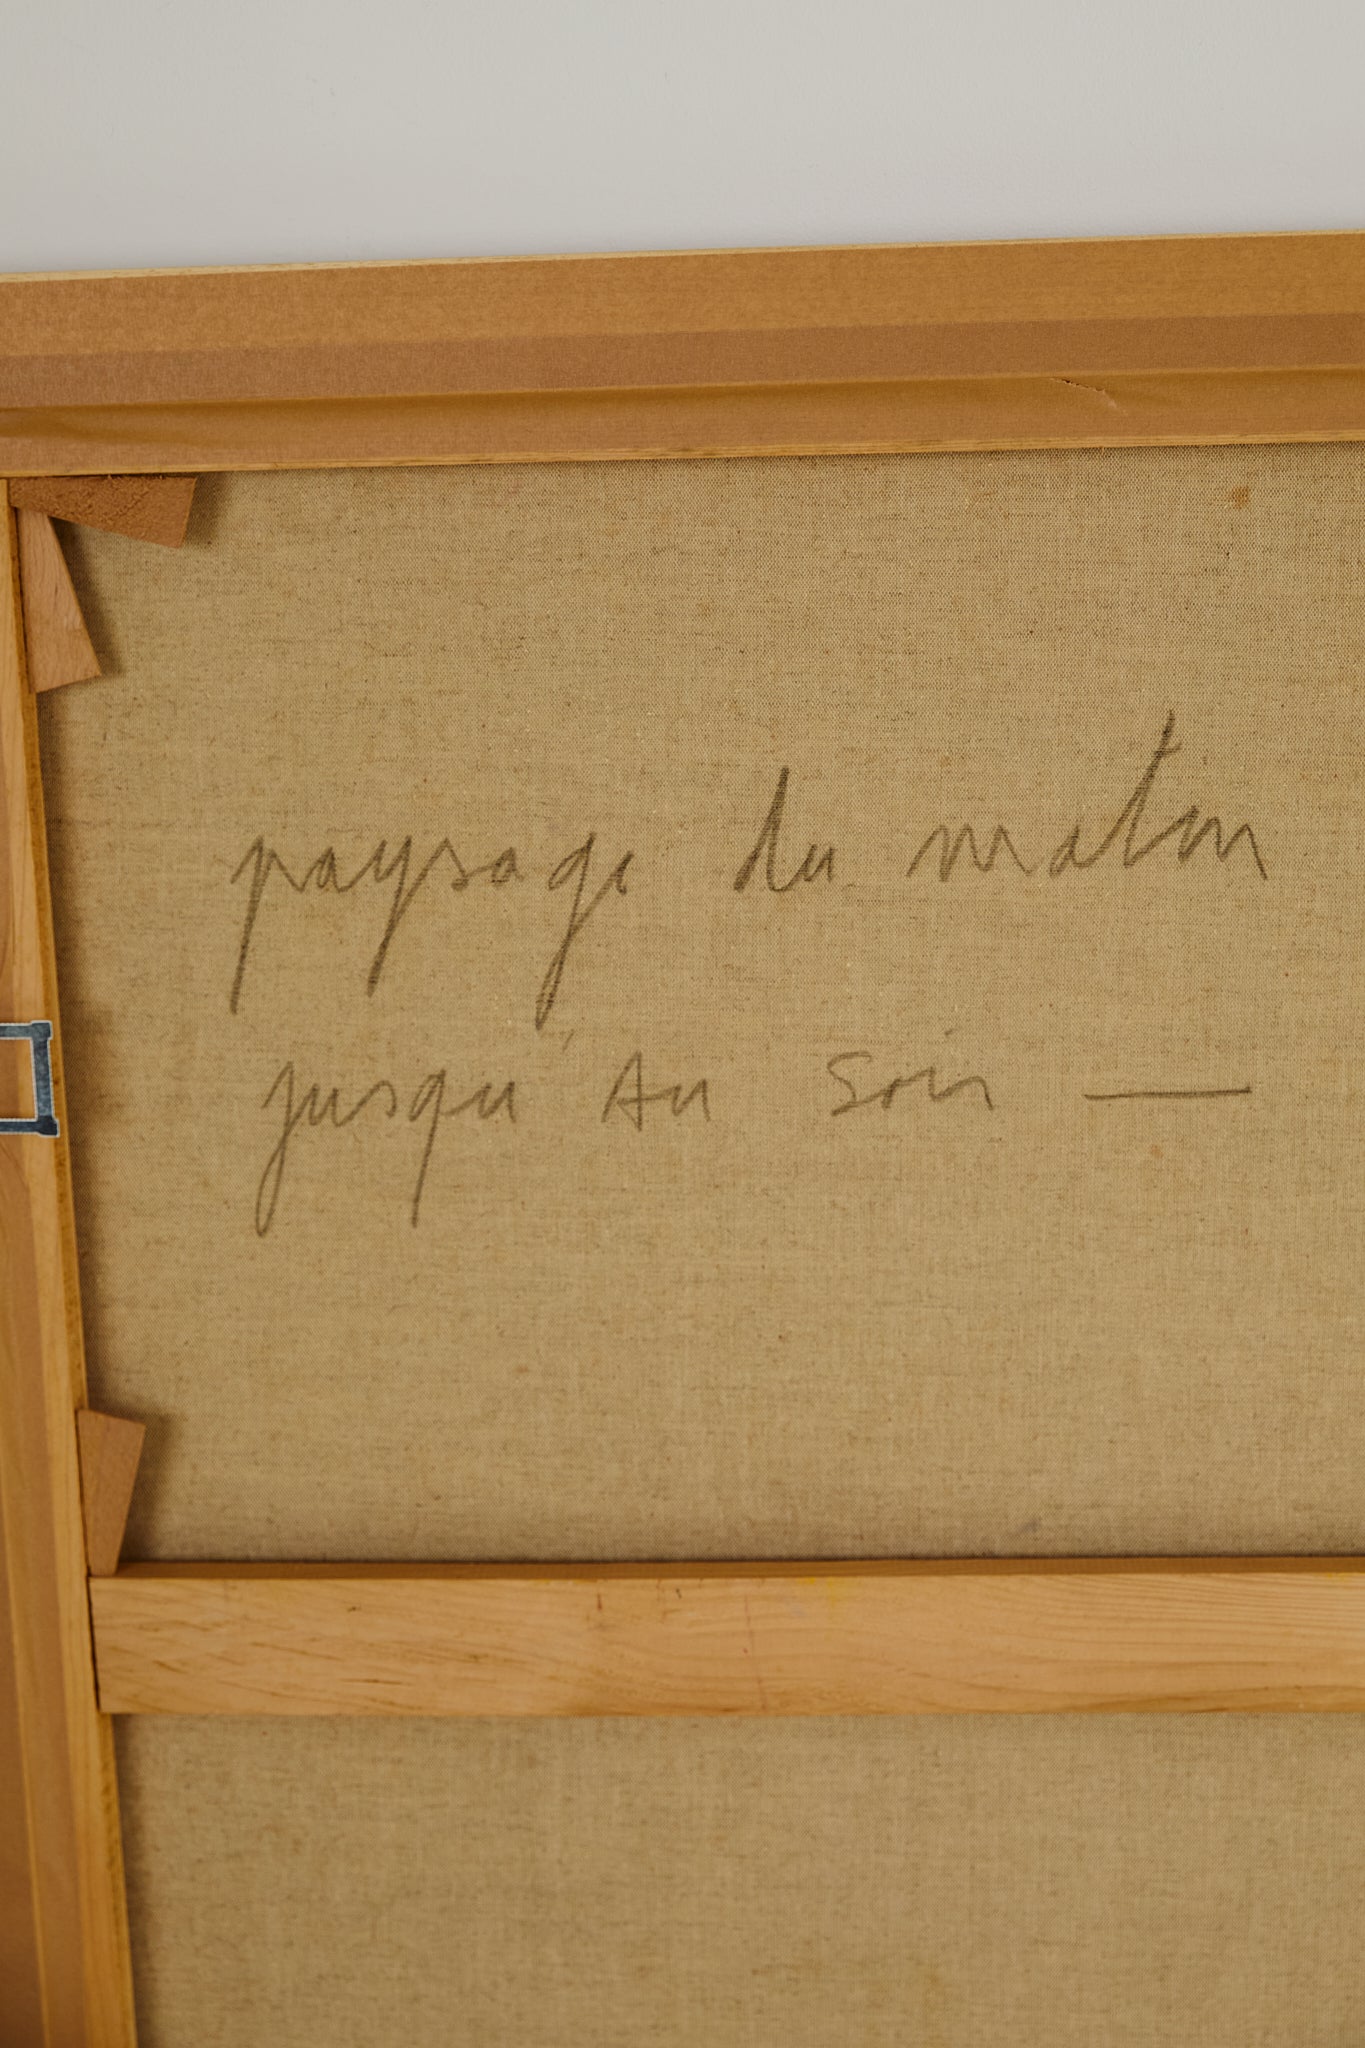 paysage du matin
jusqu'au soir —